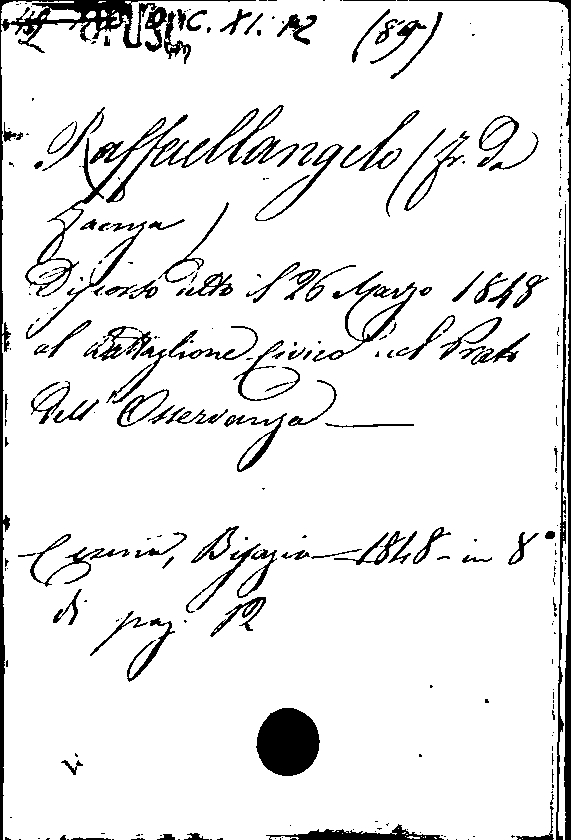 C. XI. 12 (89)
Raffaellangelo (Fr. da
Faenza)
Discorso detto il 26 Marzo 1848
al Battaglione Civico nel Prato
dell'Osservanza
Cesena, Bisazia 1848 - in 8°
di pag. 12